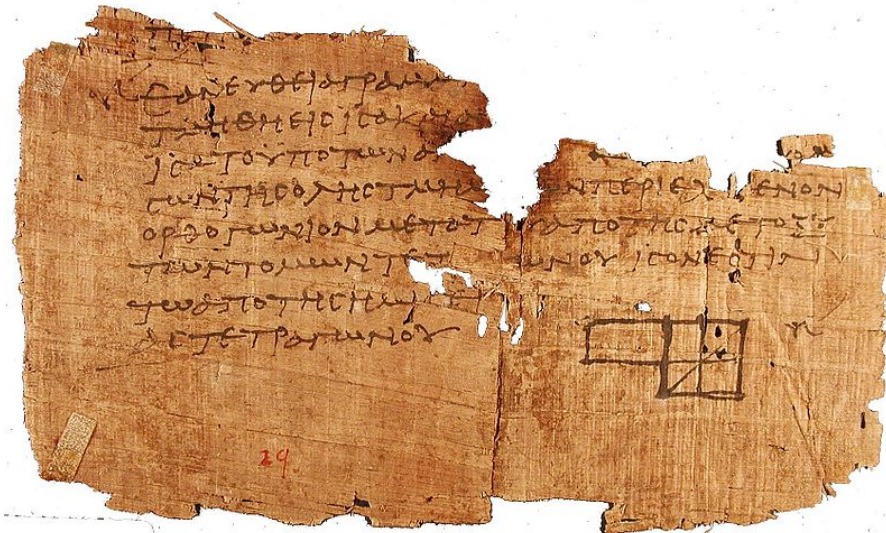 ΕΑΝΕΥΘΕΙΑΓΡΑΜΜ
ΤΜΗΘΗΕΙCΙCΑΚΑΙΑ
ΙCΑΤΟΥΠΟΤΩΝΑ
CΩΝΤΗCΟΛΗCΤΜΗΜ ΩΝΠΕΡΙΕΧ ΜΕΝΟΝ
ΟΡΘΟΓΩΝΙΟΝΜΕΤΑΤ ΥΑΠΟΤΗCΜΕΤΑΞΥ
ΤΩΝΤΟΜΩΝΤΕΤ ΩΝΟΥΙCΟΝΕCΤΙΝ
ΤΩΑΠΟΤΗCΗΜΙCΕΙ
ΑCΤΕΤΡΑΓΩΝΟΥ
29.